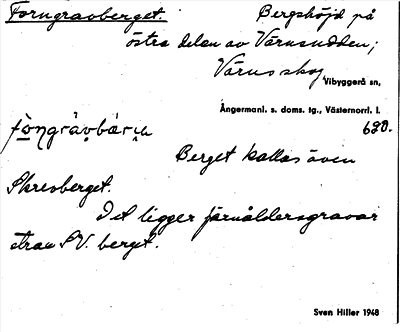 Forngravberget. Bergshöjd på
östra delen av Värnsudden;
Värns skog
Vibyggerå sn,
Ångermanl. s. doms. tg., Västernorrl. l.
630.
Berget kallas även
Skrevberget.
Det ligger fornåldersgravar
strax S V. berget.
Sven Hiller 1948